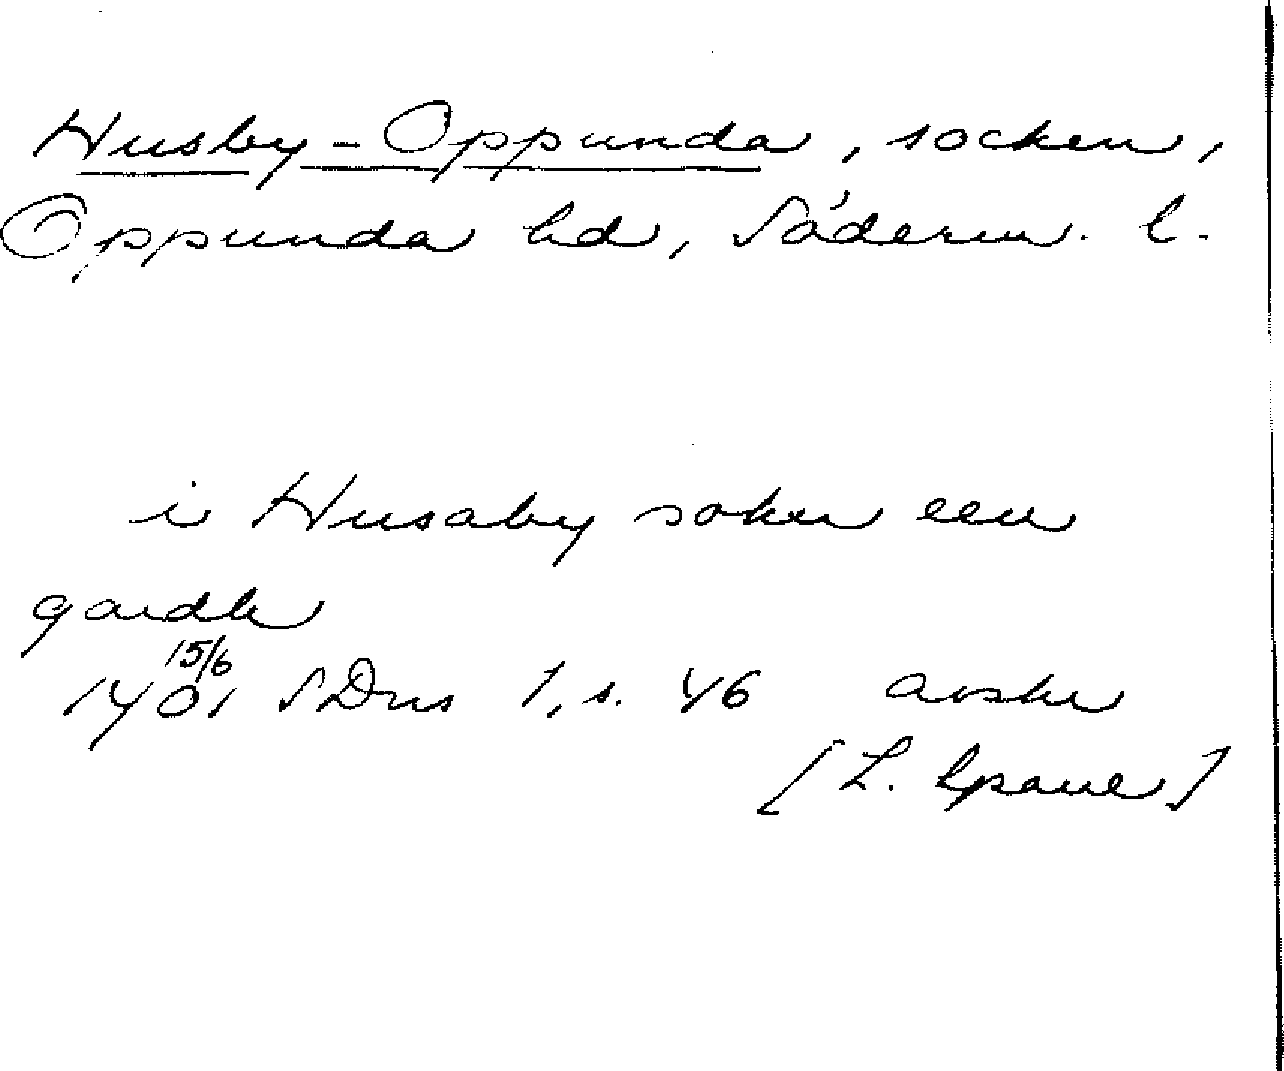 Husby-Oppunda, socken,
Oppunda hd, Söderm. l.
i Husaby sokn een
gardh
15/6
1401 SDns 1, s. 46 avskr
[L.